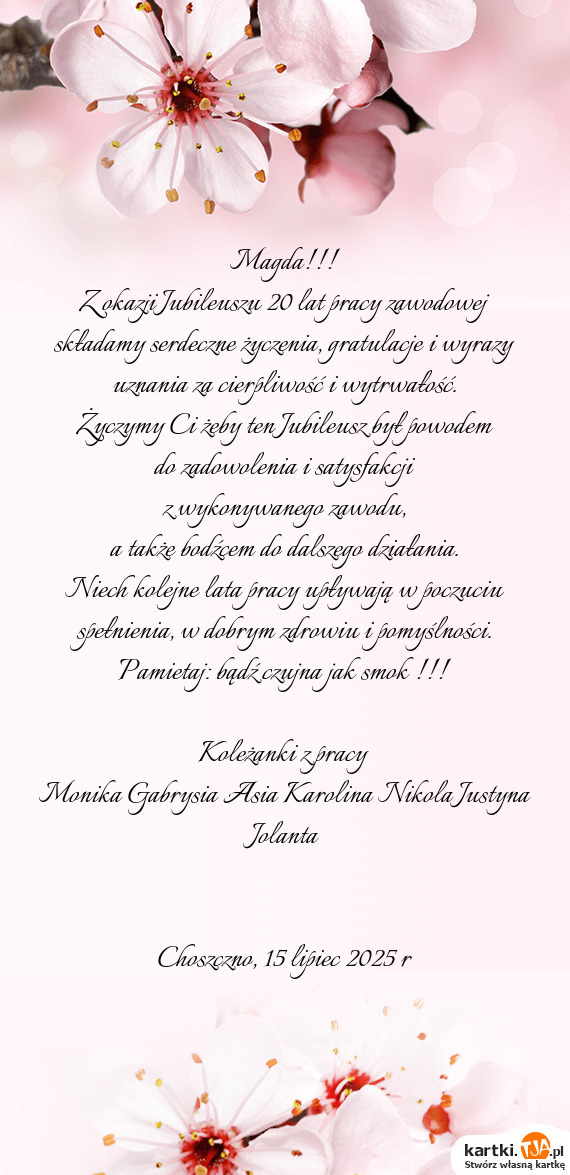 Magda!!!
Z okazji Jubileuszu 20 lat pracy zawodowej
składamy serdeczne życzenia, gratulacje i wyrazy
uznania za cierpliwość i wytrwałość.
Życzymy Ci żeby ten Jubileusz był powodem
do zadowolenia i satysfakcji
z wykonywanego zawodu,
a także bodźcem do dalszego działania.
Niech kolejne lata pracy upływają w poczuciu
spełnienia, w dobrym zdrowiu i pomyślności.
Pamietaj: bądź czujna jak smok !!!
Koleżanki z pracy
Monika Gabrysia Asia Karolina Nikola Justyna
Jolanta
Choszczno, 15 lipiec 2025 r
kartki.TJA.pl
Stwórz własną kartkę